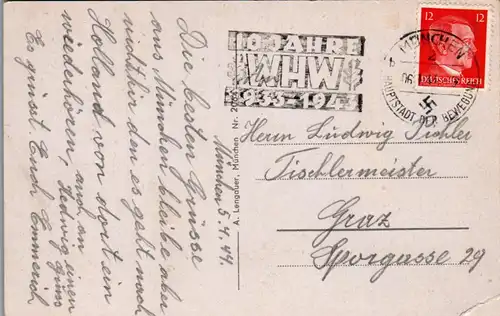 Die besten Grüsse
aus München bleibe aber
nicht hier den es geht nach
Holland von dort ein
wiederhören, auch an
Hedwig einen Gruss
Es grüsst Euch Emmerich
München 5.4.44.
A. Lengauer, München, Nr.
10 JAHRE
WHW
1933-194
MÜNCHEN
2
06
HAUPTSTADT DER BEWEGUNG
12 12
DEUTSCHES REICH
Herrn Ludwig
Tischlermeister
Graz
Sporgasse 29